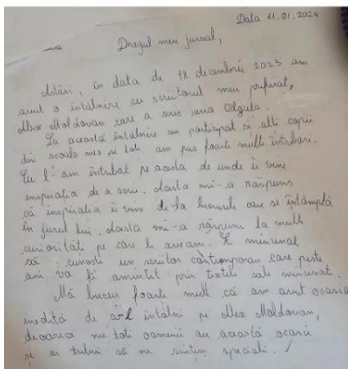 Data 11.01.2024
Dragul meu jurnal,
Astăzi, în data de 18 decembrie 2023 am
avut o întâlnire cu scriitorul meu preferat,
Alex Moldovan care a scris seria Olguța.
La această întâlnire au participat și alți copii
din școala mea și toți am pus foarte multe întrebări.
Eu l-am întrebat pe acesta de unde îi vine
inspirația de a scrie. Acesta mi-a răspuns
că inspirația îi vine de la lucrurile care se întâmplă
în jurul lui. Acesta mi-a răspuns la mult
curiozități pe care le aveam. E minunat
să cunoști un scriitor contemporan care peste
ani va fi amintit prin textele sale minunat.
Mă bucur foarte mult că am avut ocazia
inedită de a-l întâlni pe Alex Moldovan,
deoarece nu toți oamenii au această ocazie
și ar trebui să ne simțim speciali.